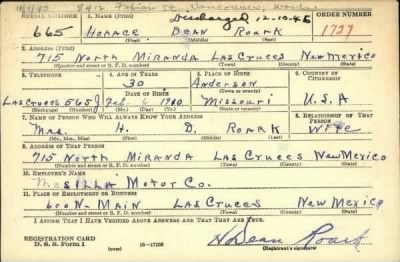 10/11/43 8412 Fabian St. Vancouver, Wash.
Discharged 12-10-45
SERIAL NUMBER 1. NAME (Print) ORDER NUMBER
665 HORACE DEAN ROARK 1729
(First) (Middle) (Last)
2. ADDRESS (Print)
715 NORTH MIRANDA LAS CRUCES NEW MEXICO
(Number and street or R. F. D. number) (Town) (County) (State)
3. TELEPHONE 4. AGE IN YEARS 5. PLACE OF BIRTH 6. COUNTRY OF CITIZENSHIP
30 Anderson
DATE OF BIRTH (Town or county)
LAS CRUCES 565J Feb. 1910 Missouri U.S.A
(Exchange) (No.) (Mo.) (Day) (Yr.) (State or country)
7. NAME OF PERSON WHO WILL ALWAYS KNOW YOUR ADDRESS 8. RELATIONSHIP OF THAT PERSON
MRS. H. D. ROARK WIFE
(Mr., Mrs., Miss) (First) (Middle) (Last)
9. ADDRESS OF THAT PERSON
715 NORTH MIRANDA LAS CRUCES NEW MEXICO
(Number and street or R. F. D. number) (Town) (County) (State)
10. EMPLOYER'S NAME
MESILLA MOTOR CO.
11. PLACE OF EMPLOYMENT OR BUSINESS
600 N- MAIN LAS CRUCES NEW MEXICO
(Number and street or R. F. D. number) (Town) (County) (State)
I AFFIRM THAT I HAVE VERIFIED ABOVE ANSWERS AND THAT THEY ARE TRUE.
REGISTRATION CARD
D. S. S. Form 1 (over) 16-17105 H Dean Roark
(Registrant's signature)